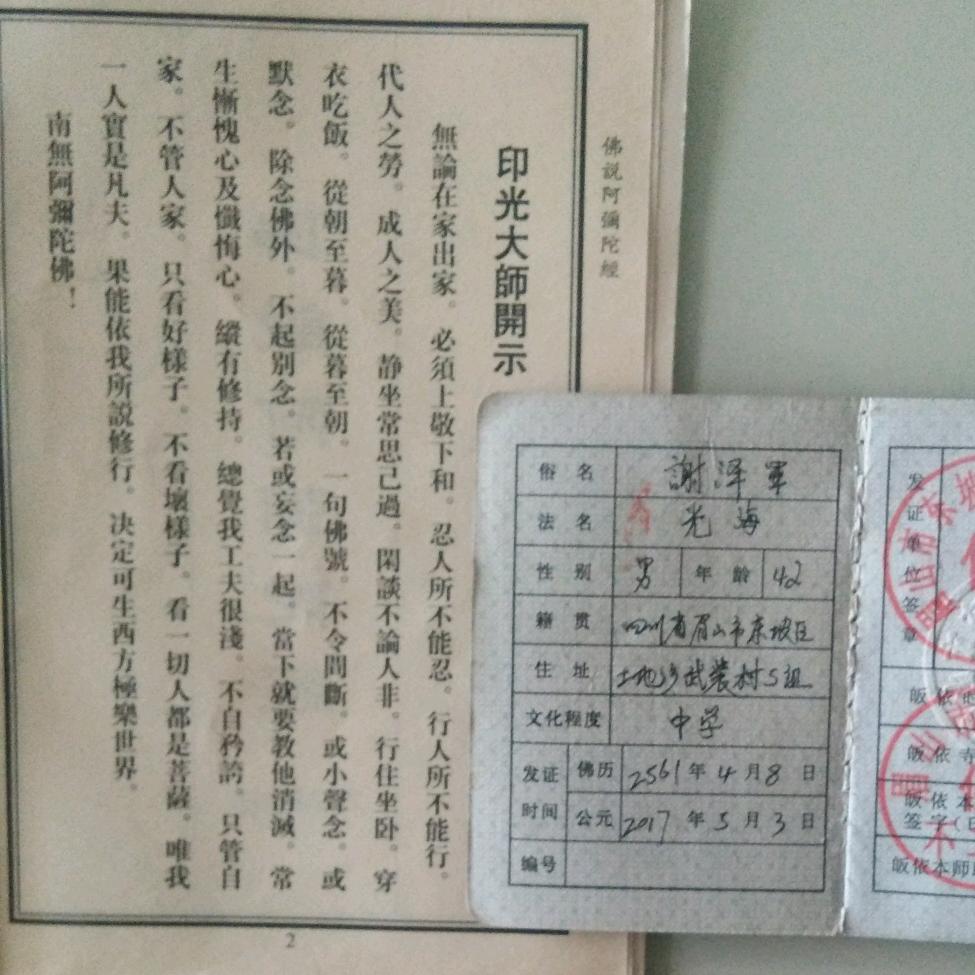 佛説阿彌陀經
印光大師開示
無論在家出家。必須上敬下和。忍人所不能忍。行人所不能行。
代人之勞。成人之美。静坐常思己過。閑談不論人非。行住坐卧。穿
衣吃飯。從朝至暮。從暮至朝。一句佛號。不令間斷。或小聲念。或
默念。除念佛外。不起别念。若或妄念一起。當下就要教他消滅。常
生慚愧心及懺悔心。縱有修持。總覺我工夫很淺。不自矜誇。只管自
家。不管人家。只看好樣子。不看壞樣子。看一切人都是菩薩。唯我
一人實是凡夫。果能依我所説修行。决定可生西方極樂世界。
南無阿彌陀佛！
2
俗名 謝泽軍
法名 光海
性别 男 年龄 42
籍贯 四川省眉山市东坡区
住址 土地乡武装村5组
文化程度 中学
发证时间 佛历 2561年4月8日
公元 2017年5月3日
编号
发证单位签章
皈依
皈依寺
皈依本
签字
皈依本师